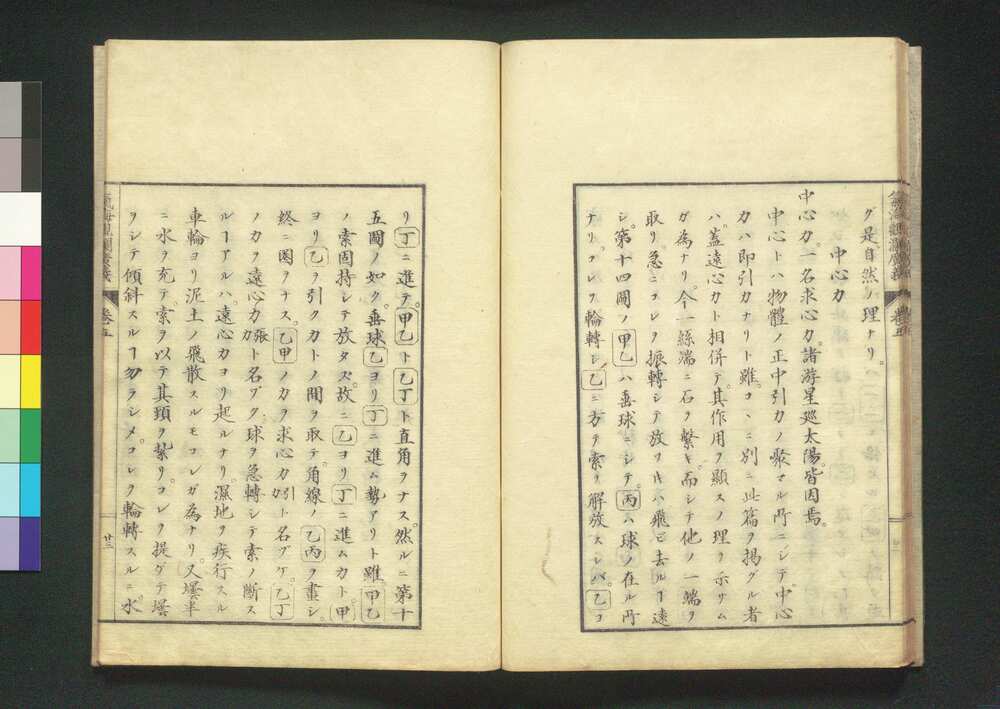 グ是自然ノ理ナリ。
中心力
中心力。一名求心力。諸游星廻太陽。皆因焉。
中心トハ物體ノ正中引力ノ聚マル所ニシテ中心
力ハ即引力ナリト雖。コヽニ別ニ此篇ヲ掲グル者
ハ。蓋遠心力ト相併テ。其作用ヲ顯スノ理ヲ示サム
ガ為ナリ。今一絲端ニ石ヲ繋ギ。而シテ他ノ一端ヲ
取リ。急ニコレヲ振轉シテ放ツ寸ハ飛ヒ去ルヿ遠
シ。第十四圖ノ甲乙ハ垂球ニシテ。丙ハ球ノ在ル所
ナリ。コレヲ輪轉シ乙ニ方テ索ヲ解放スレバ。乙ヨ
リ丁ニ進テ。甲乙ト乙丁ト直角ヲナス。然ルニ第十
五圖ノ如ク。垂球乙ヨリ丁ニ進ム勢アリト雖。甲乙
ノ索固持シテ放タズ。故ニ乙ヨリ丁ニ進ム力ト。甲
ヨリ乙ヲ引ク力トノ間ヲ取テ。角線ノ乙丙ヲ畫シ。
終ニ圏ヲナス。乙甲ノ力ヲ求心力ト名ヅケ。乙丁
ノ力ヲ遠心力ト名ヅク。球ヲ急轉シテ索ノ斷ス
ルヿアルハ。遠心力ヨリ起ルナリ。濕地ヲ疾行スル
車輪ヨリ泥土ノ飛散スルモコレガ為ナリ。又壜半
ニ水ヲ充テ。索ヲ以テ其頸ヲ紮リ。コレヲ提ゲテ壜
ヲシテ傾斜スルヿ勿ラシメ。コレヲ輪轉スルニ。水
卷五
廿三